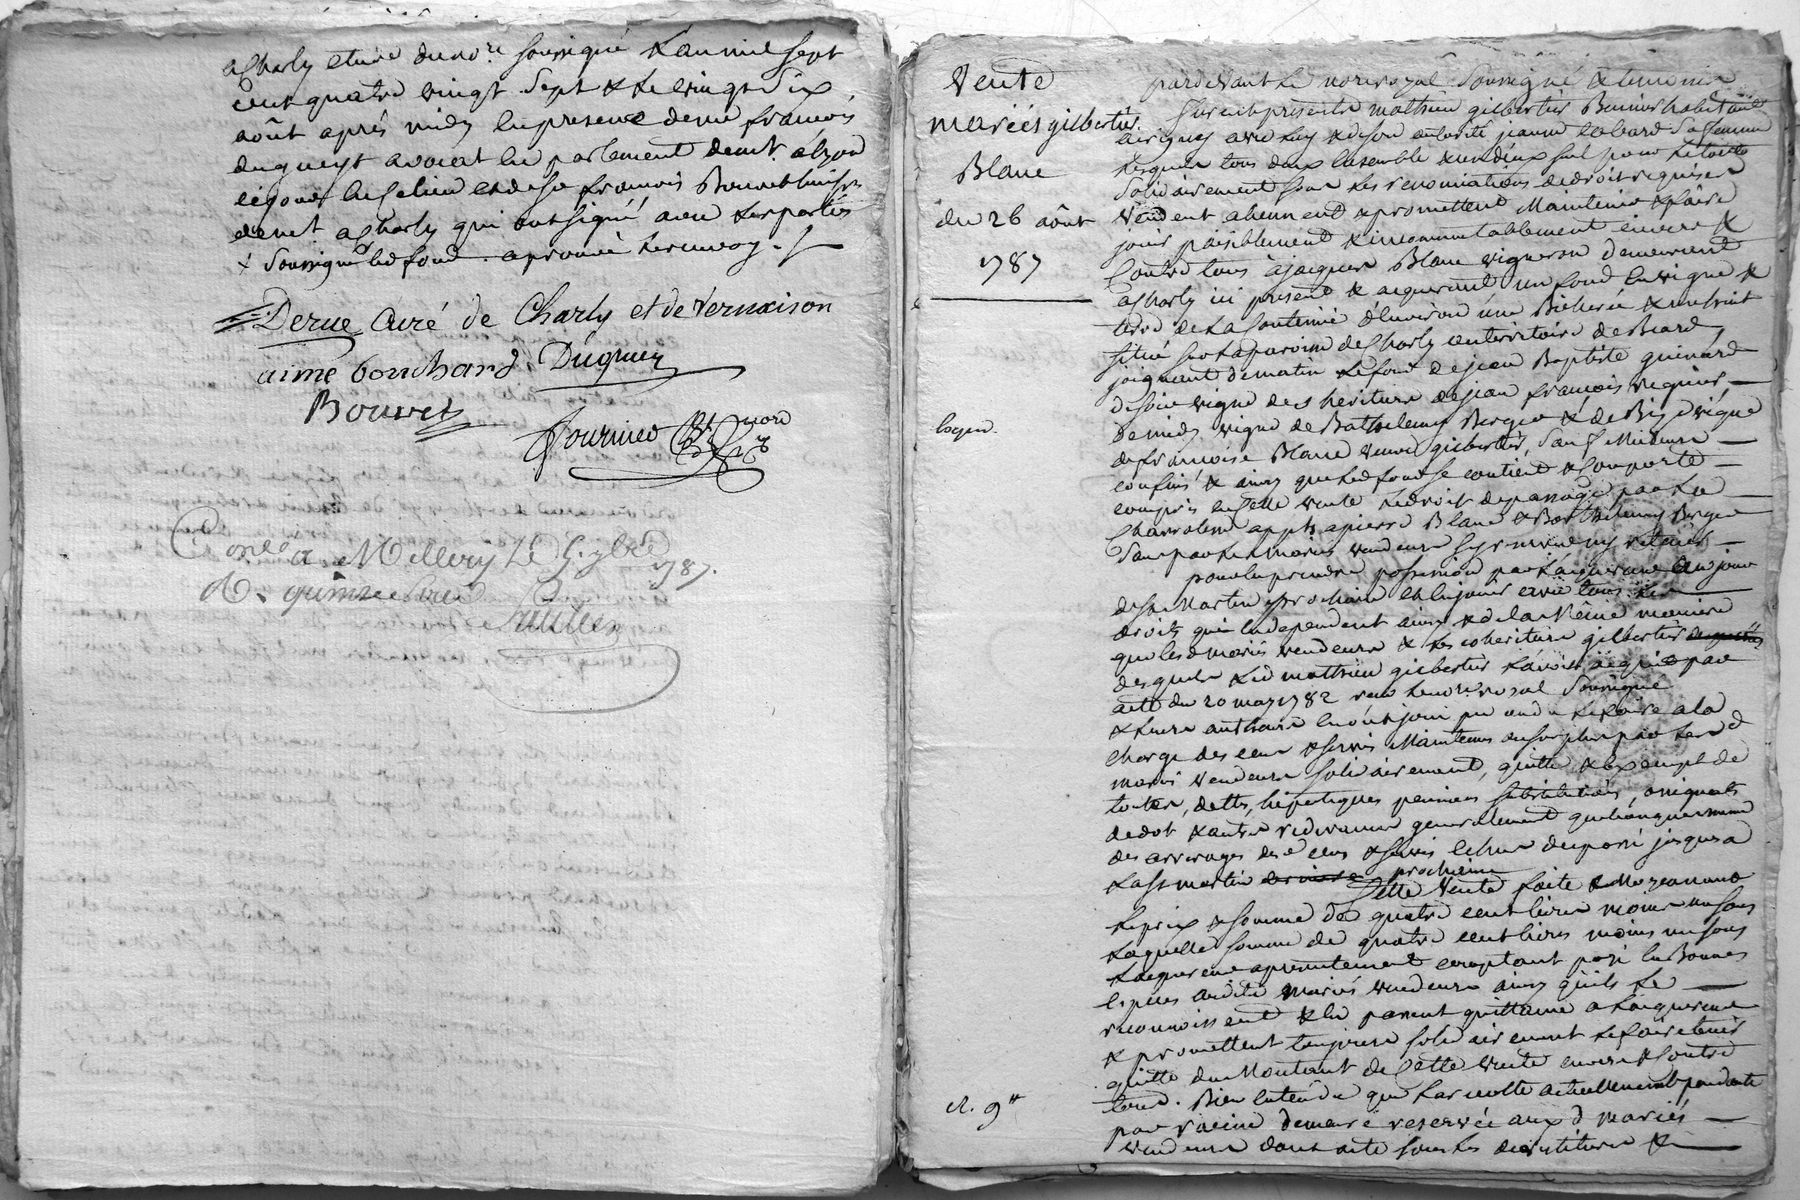 a Charly etude du nore soussigné l'an mil sept
cent quatre vingt sept & le vingt six
août après midy en presence de me françois
duqueyt avocat en parlement demt a lyon
et de sr françois Bouvet
demt a Charly qui ont signé avec les parties
& soussigné led fond. aprouvé le renvoy.
Derue Curé de Charly et de Vernaison
aimé bouchard Duquey
Bouvet
fournier
Conlé a Millery le 5 7bre
1787.
R. quinze sous
Vente
mariés gilbertier
Blanc
du 26 août
1787
pardevant le nore royal soussigné & temoins
furent presents mathieu gilbertier
avec luy & de son autorité jeanne sa femme
lesquels tous deux ensemble & un d'eux seul pour le tout
solidairement sous les renonciations de droit requises
vendent alienent & promettent maintenir & faire
jouir paisiblement & incommutablement envers &
contre tous à jacques Blanc vigneron demeurant
a Charly ici present & acquerant un fond en vigne &
terre de la contenue d'environ une Bicherée & un huit
situé sur la paroisse de Charly au territoire de Biard
joignant de matin le fond de jean Baptiste guinard
de soir vigne des heritiers de jean françois regnier
de midy vigne de Barthelemy Berger & de Bize vigne
de françoise Blanc veuve gilbertier, sauf meilleurs
confins & ainsy que led fond se contient & comporte
compris en cette vente le droit de passage par les
appts a pierre Blanc & Barthelemy Berger
sans par les mariés vendeurs s'y reserver ny retenir
pour en prendre possession par l'acquereur au jour
de st Martin prochain et en jouir avec tous les
droits qui en dependent ainsy & de la même maniere
que lesd mariés vendeurs & les coheritiers gilbertier
desquels led mathieu gilbertier l'avoit acquis par
acte du 20 may 1782 reçu le nore royal soussigné
& leurs autheurs en ont joui pu ou du le faire a la
charge des cens & servis maintenu au surplus par lesd
mariés vendeurs solidairement, quitte & exempt de
toutes dettes, hipoteques pensions substitutions,
de dot & autres redevances generalement quelconques meme
des arrerages des d cens & servis echus du passé jusques a
la st martin prochaine
Cette vente faite & moyennant
le prix & somme de quatre cent livres moins un sous
laquelle somme de quatre cent livres moins un sous
l'acquereur a presentement comptant payé en Bonnes
especes auxdits mariés vendeurs ainsy qu'ils le
reconnoissent & en passent quittance a l'acquereur
& promettent toujours solidairement le faire tenir
quitte du montant de cette vente envers & contre
tous. Bien entendu que la recolte actuellement pendante
par racine demeure reservée aux d mariés
vendeurs dont acte sous les &
R. 9tt